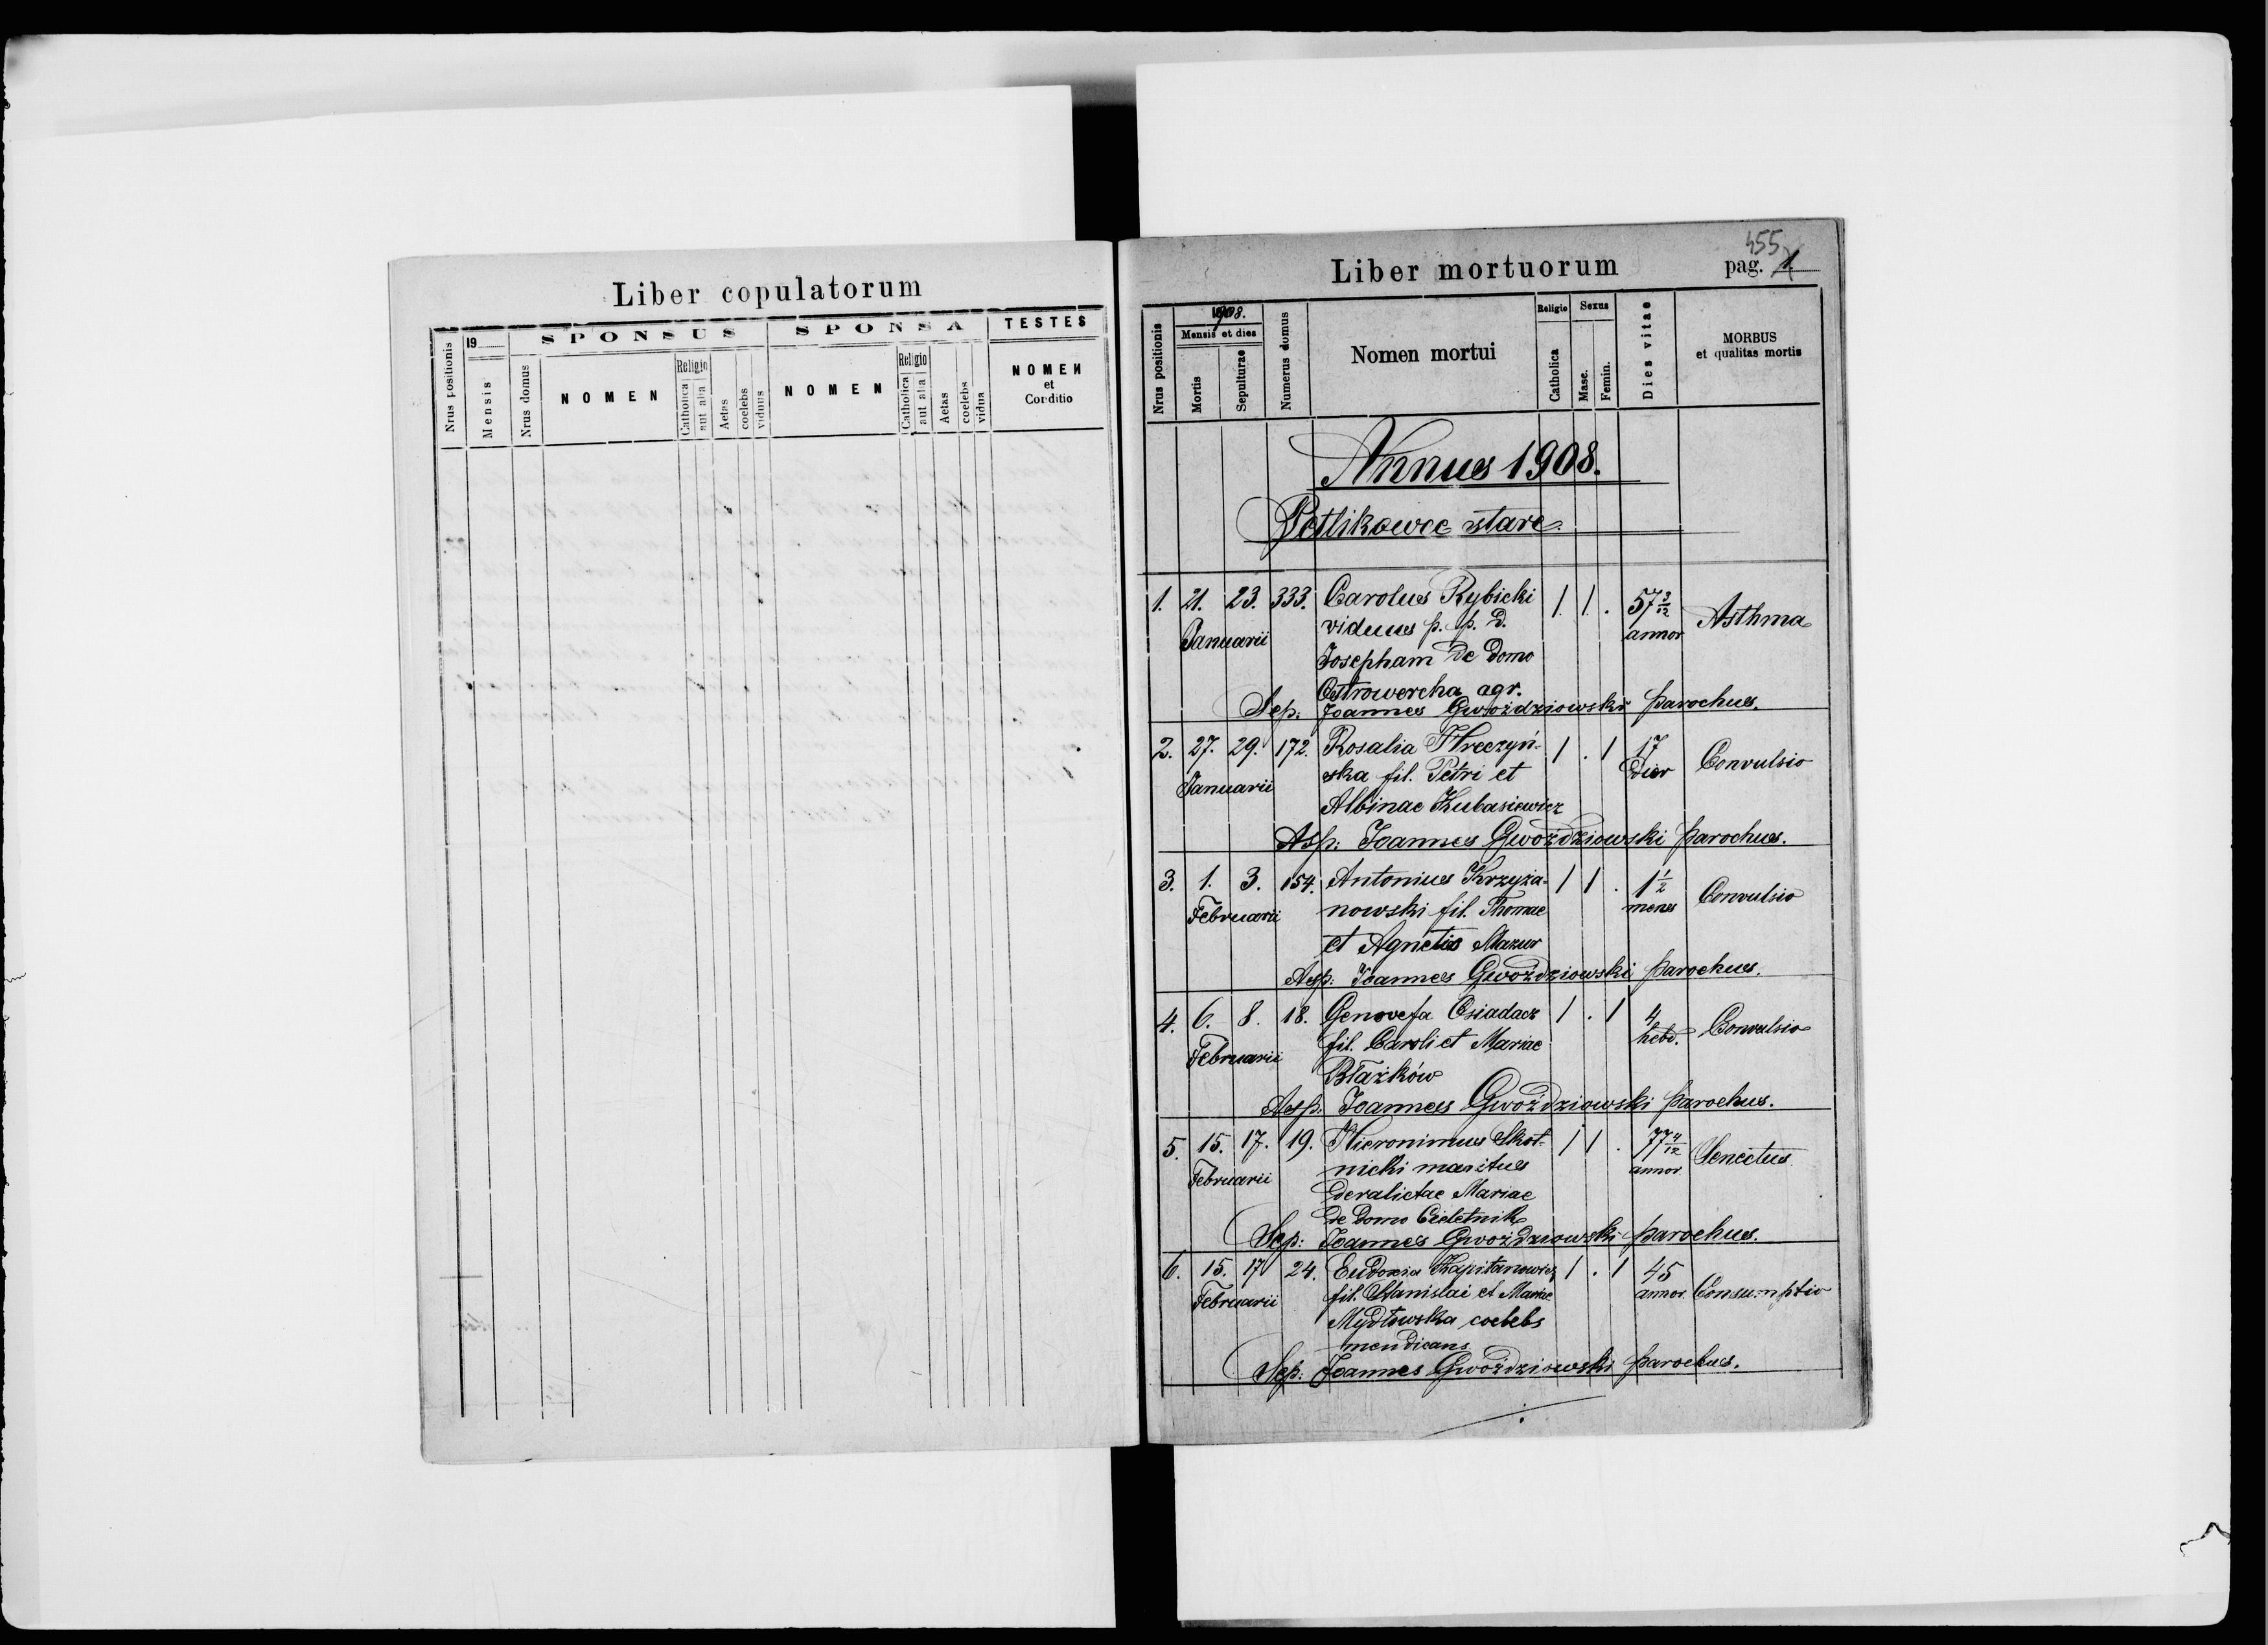 Liber copulatorum
Nrus positionis
19
Mensis
SPONSUS
Nrus domus
NOMEN
Religio
Catholica
aut alia
Aetas
coelebs
viduus
SPONSA
NOMEN
Religio
Catholica
aut alia
Aetas
coelebs
vidua
TESTES
NOMEN
et
Conditio
455
Liber mortuorum pag. 1
Nrus positionis
1908.
Mensis et dies
Mortis
Sepulturae
Numerus domus
Nomen mortui
Religio
Catholica
Sexus
Masc.
Femin.
Dies vitae
MORBUS
et qualitas mortis
Annus 1908.
Petlikowce stare
1. 21. 23. 333. Carolus Rybicki 1. 1. . 57 3/12 Asthma
Januarii viduus p. p. d. annor
Josepham de domo
Ostrowercha agr.
Sep: Joannes Gwoździowski parochus.
2. 27. 29. 172. Rosalia Hreczyń- 1 . 1 17 Convulsio
Januarii ska fil. Petri et dier
Albinae Kubasiewicz
Asp: Joannes Gwoździowski parochus.
3. 1. 3. 154. Antonius Krzyża- 1 1 . 1 1/2 Convulsio
Februarii nowski fil. Thomae mens
et Agnetis Mazur
Asp: Joannes Gwoździowski parochus.
4. 6. 8. 18. Genovefa Osiadacz 1 . 1 4 Convulsio
Februarii fil. Caroli et Mariae hebd.
Błażków
Asp. Joannes Gwoździowski parochus.
5. 15. 17. 19. Hieronimus Skot- 1 1 . 77 4/12 Senectus
Februarii nicki maritus annor.
deralictae Mariae
de domo Cieletnik
Sep: Joannes Gwoździowski parochus.
6. 15. 17 24. Eudoxia Kapitanowicz 1 . 1 45 Consumptio
Februarii fil. Stanislai et Mariae annor.
Mydłowska coelebs
mendicans
Sep: Joannes Gwoździowski parochus.